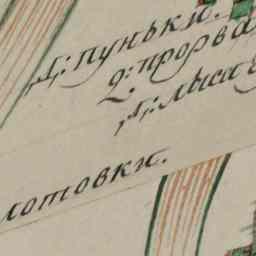 Д: пуньки.
2: прорва
Д: лыса
лотовки.